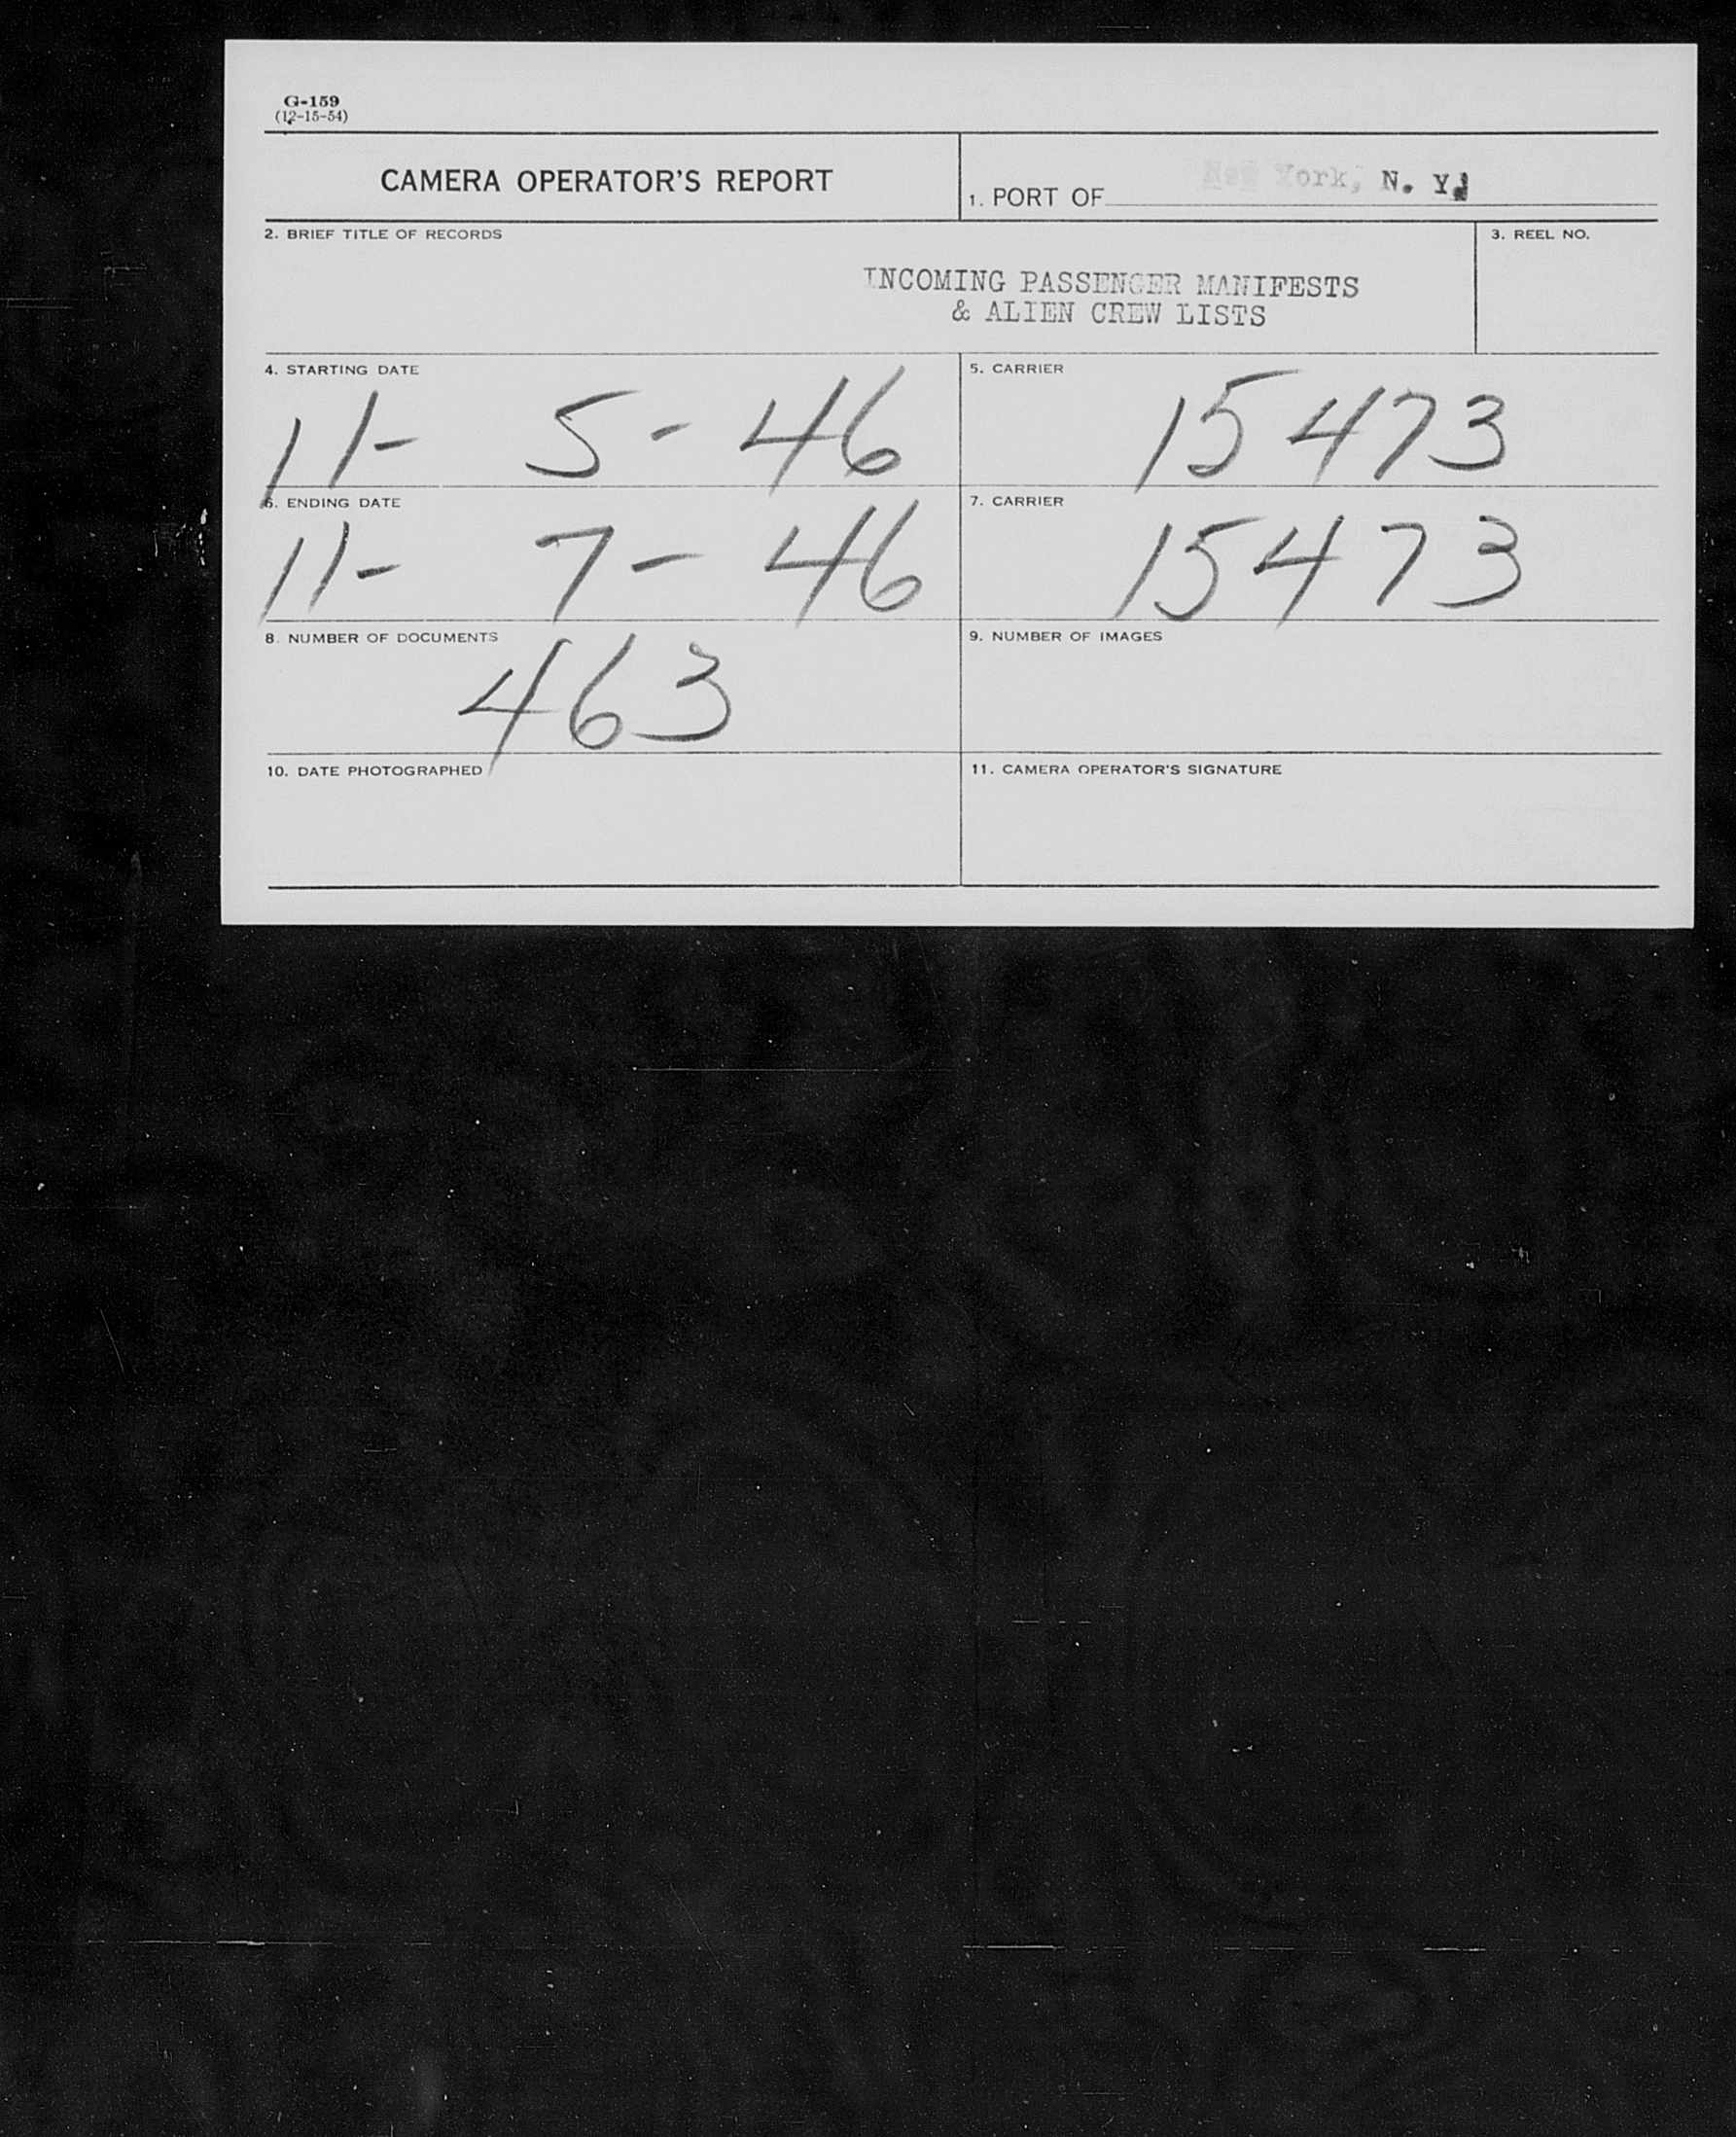 G-159
(12-15-54)
CAMERA OPERATOR'S REPORT
1. PORT OF New York, N. Y.
2. BRIEF TITLE OF RECORDS
3. REEL NO.
INCOMING PASSENGER MANIFESTS
& ALIEN CREW LISTS
4. STARTING DATE
11- 5 - 46
5. CARRIER
15473
6. ENDING DATE
11- 7 - 46
7. CARRIER
15473
8. NUMBER OF DOCUMENTS
463
9. NUMBER OF IMAGES
10. DATE PHOTOGRAPHED
11. CAMERA OPERATOR'S SIGNATURE